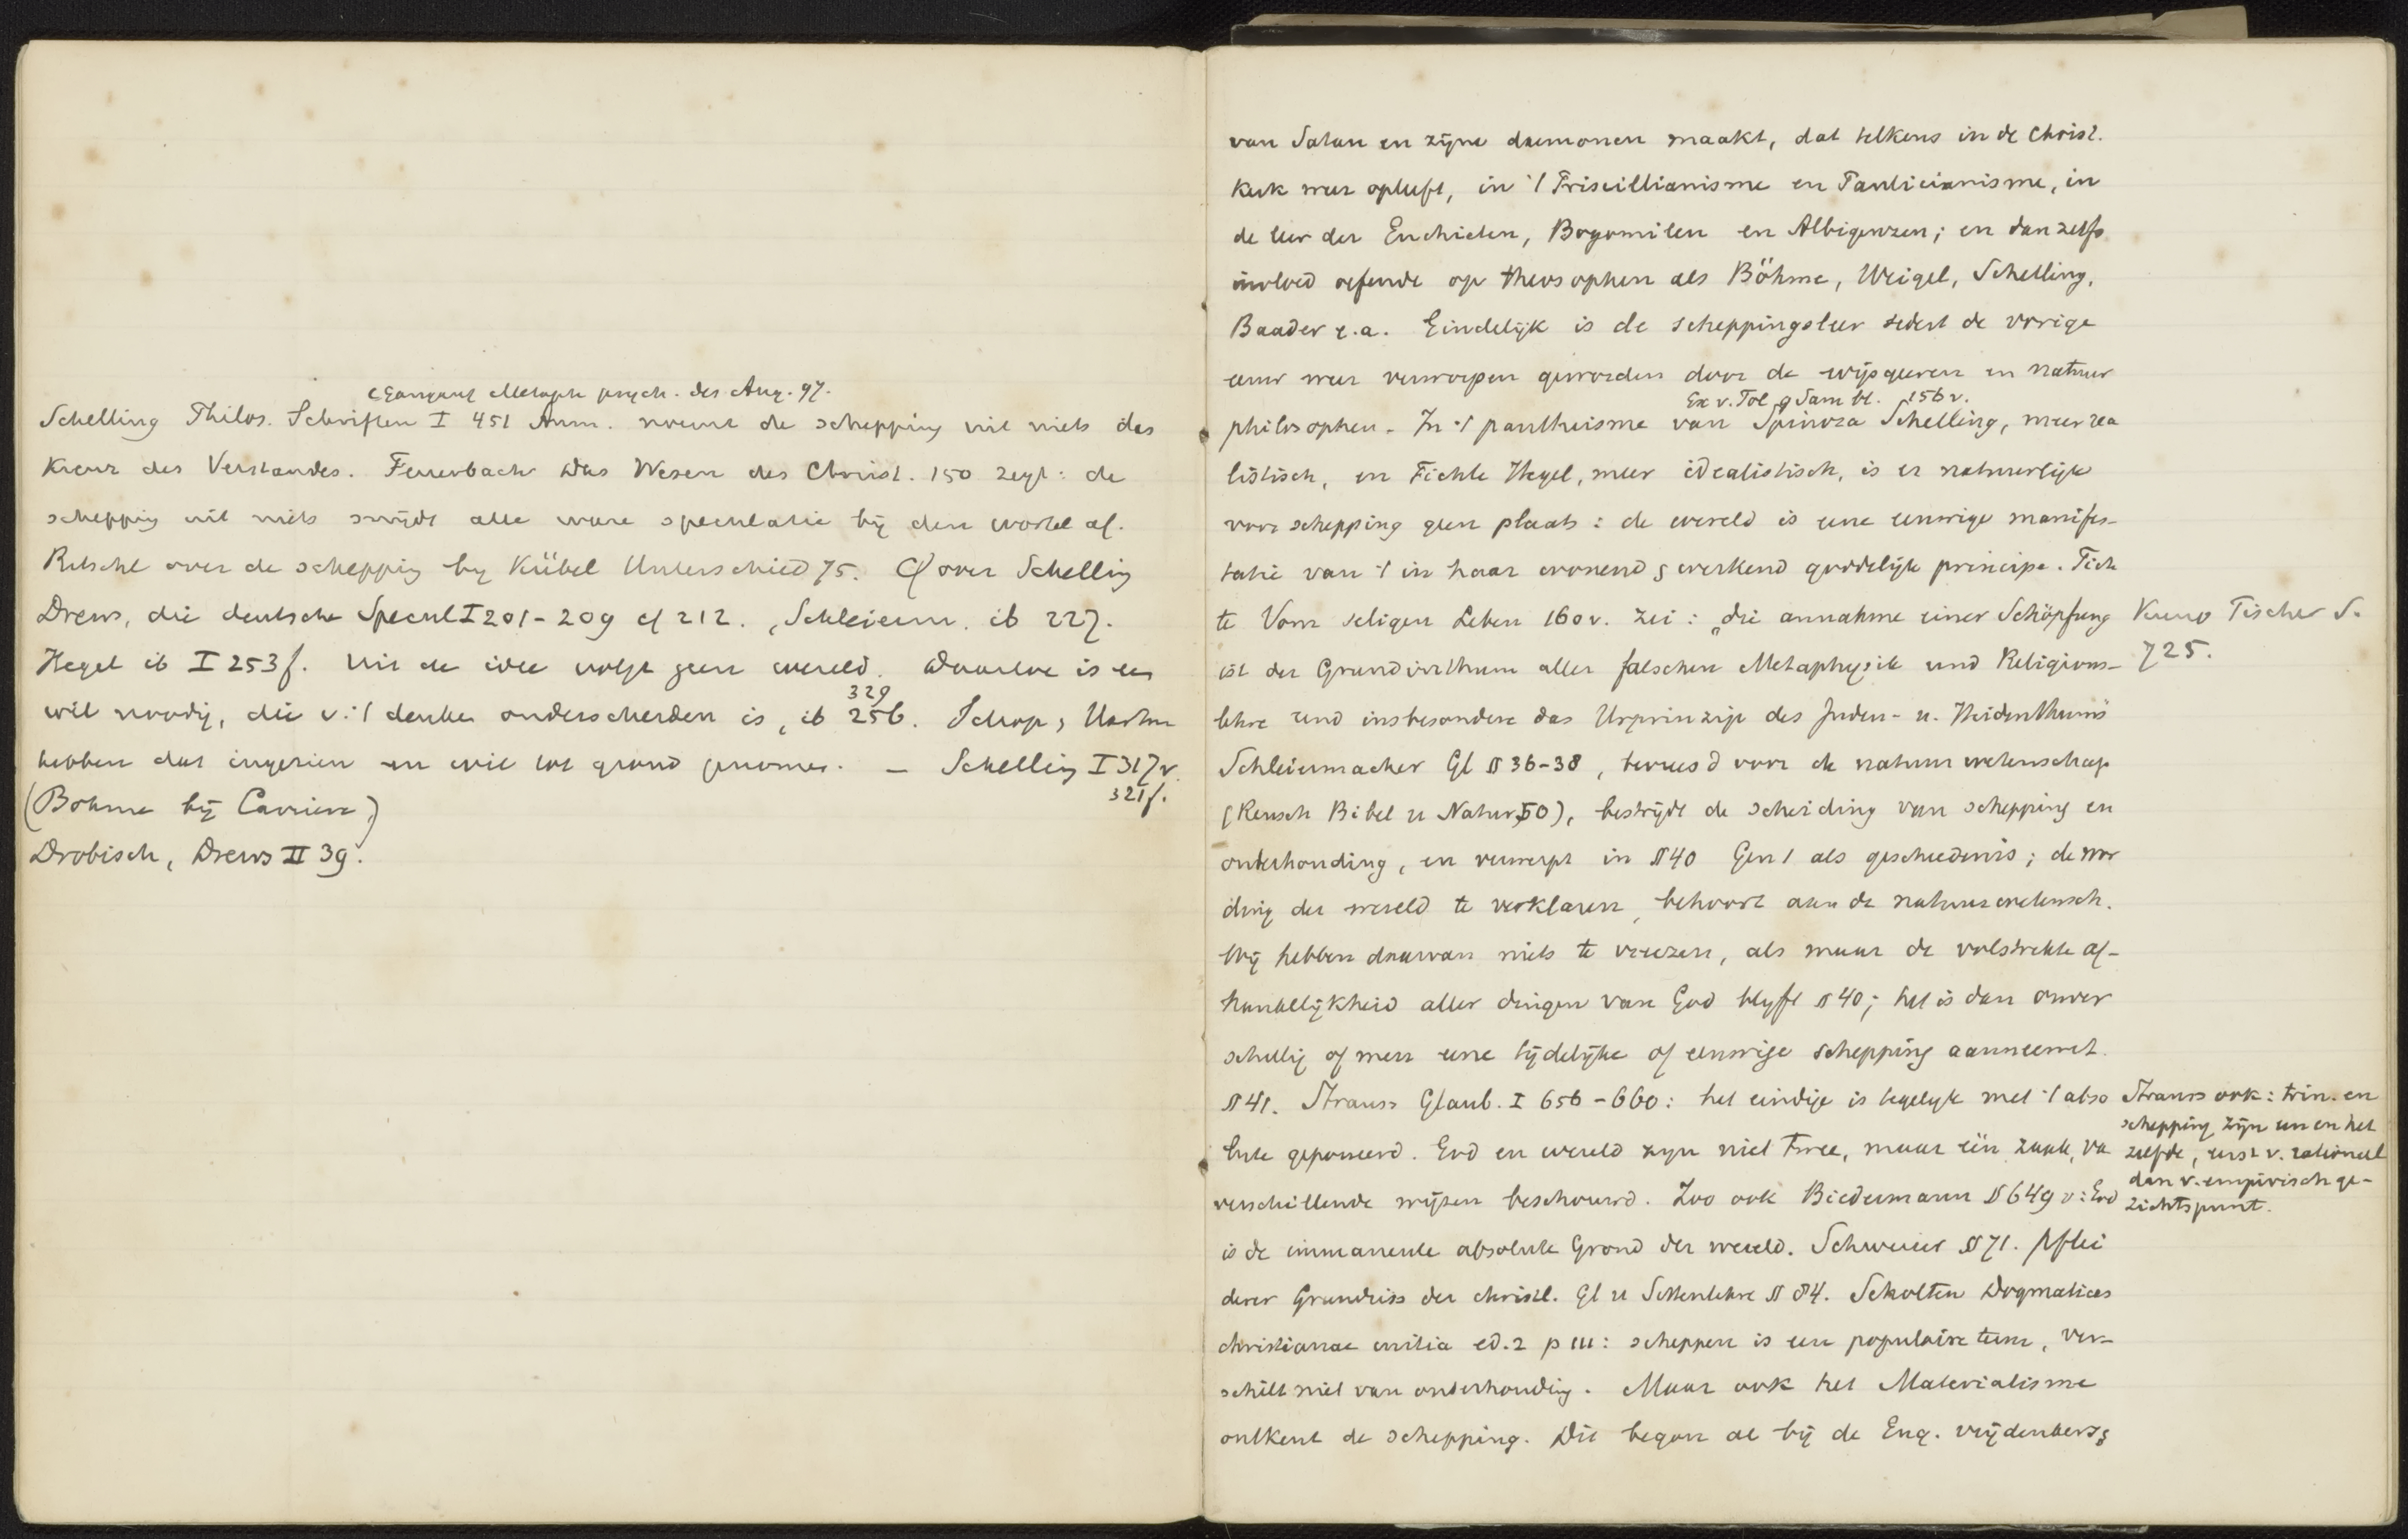 Gangauf Metaph psych. des Aug. 97.
Schelling Philos. Schriften I 451 Anm. noemt de schepping uit niets das
Kreuz des Verstandes. Feuerbach Das Wesen des Christ. 150 zegt: de
schepping uit niets snijdt alle ware speculatie bij den wortel af.
Ritschl over de schepping by Kübel Unterschied 75. Cf over Schelling
Drews, die deutsche Specul I 201-209 cf 212. Schleierm. ib 227.
Hegel ib I 253f. Uit de idee volgt geen wereld. Daartoe is een
329
wil noodig, die v. 't denken onderscheiden is, ib 256. Schop, Hartm
hebben dat ingezien en wil tot grond genomen. - Schelling I 317v.
321f.
(Böhme bij Carriere)
Drobisch, Drews II 39.
van Satan en zijne daemonen maakt, dat telkens in de Christ.
Kerk weer opleeft, in 't Priscillianisme en Paulicianisme, in
de leer der Euchieten, Bogomilen en Albigenzen; en dan zelfs
invloed oefende op theosophen als Böhme, Weigel, Schelling,
Baader e.a. Eindelijk is de scheppingsleer sedert de vorige
eeuw weer verworpen geworden door de wijsgeeren en natuur
Ex v. Tol g Sam bl. 156 v.
philosophen. In 't pantheisme van Spinoza Schelling, meer rea
listisch, en Fichte Hegel, meer idealistisch, is er natuurlijk
voor schepping geen plaats: de wereld is eene eeuwige manifes-
tatie van 't in haar wonend & werkend goddelijk principe. Fich
te Vom seligen Leben 160 v. zei: „die annahme einer Schöpfung
Kuno Fischer S.
725.
ist der Grundirrthum aller falschen Metaphysik und Religions-
lehre und insbesondere das Urprinzip des Juden- u. Heidenthums
Schleiermacher Gl § 36-38, bevreesd voor de natuurwetenschap
(Reusch Bibel u Natur, 50), bestrijdt de scheiding van schepping en
onderhouding, en verwerpt in § 40 Gen 1 als geschiedenis; de wor
ding der wereld te verklaren, behoort aan de natuurwetensch.
Wij hebben daarvan niets te vreezen, als maar de volstrekte af-
hankelijkheid aller dingen van God blyft § 40; het is dan onver
schillig of men eene tijdelijke of eeuwige schepping aanneemt.
§ 41. Strauss Glaub. I 656-660: het eindige is tegelyk met 't abso
lute geponeerd. God en wereld zyn niet twee, maar één zaak, va
verschillende wijzen beschouwd. Zoo ook Biedermann § 649 v: God
Strauss ook: trin. en
schepping zijn een en het
zelfde, eerst v. rationeel
dan v. empirisch ge-
zichtspunt.
is de immanente absolute Grond der wereld. Schweizer § 71. Pflei
derer Grundriss der christl. Gl u Sittenlehre § 84. Scholten Dogmatices
christianae initia ed. 2 p 111: scheppen is een populaire term, ver-
schilt niet van onderhouding. Maar ook het Materialisme
ontkent de schepping. Dit begon al bij de Eng. vrijdenkers;